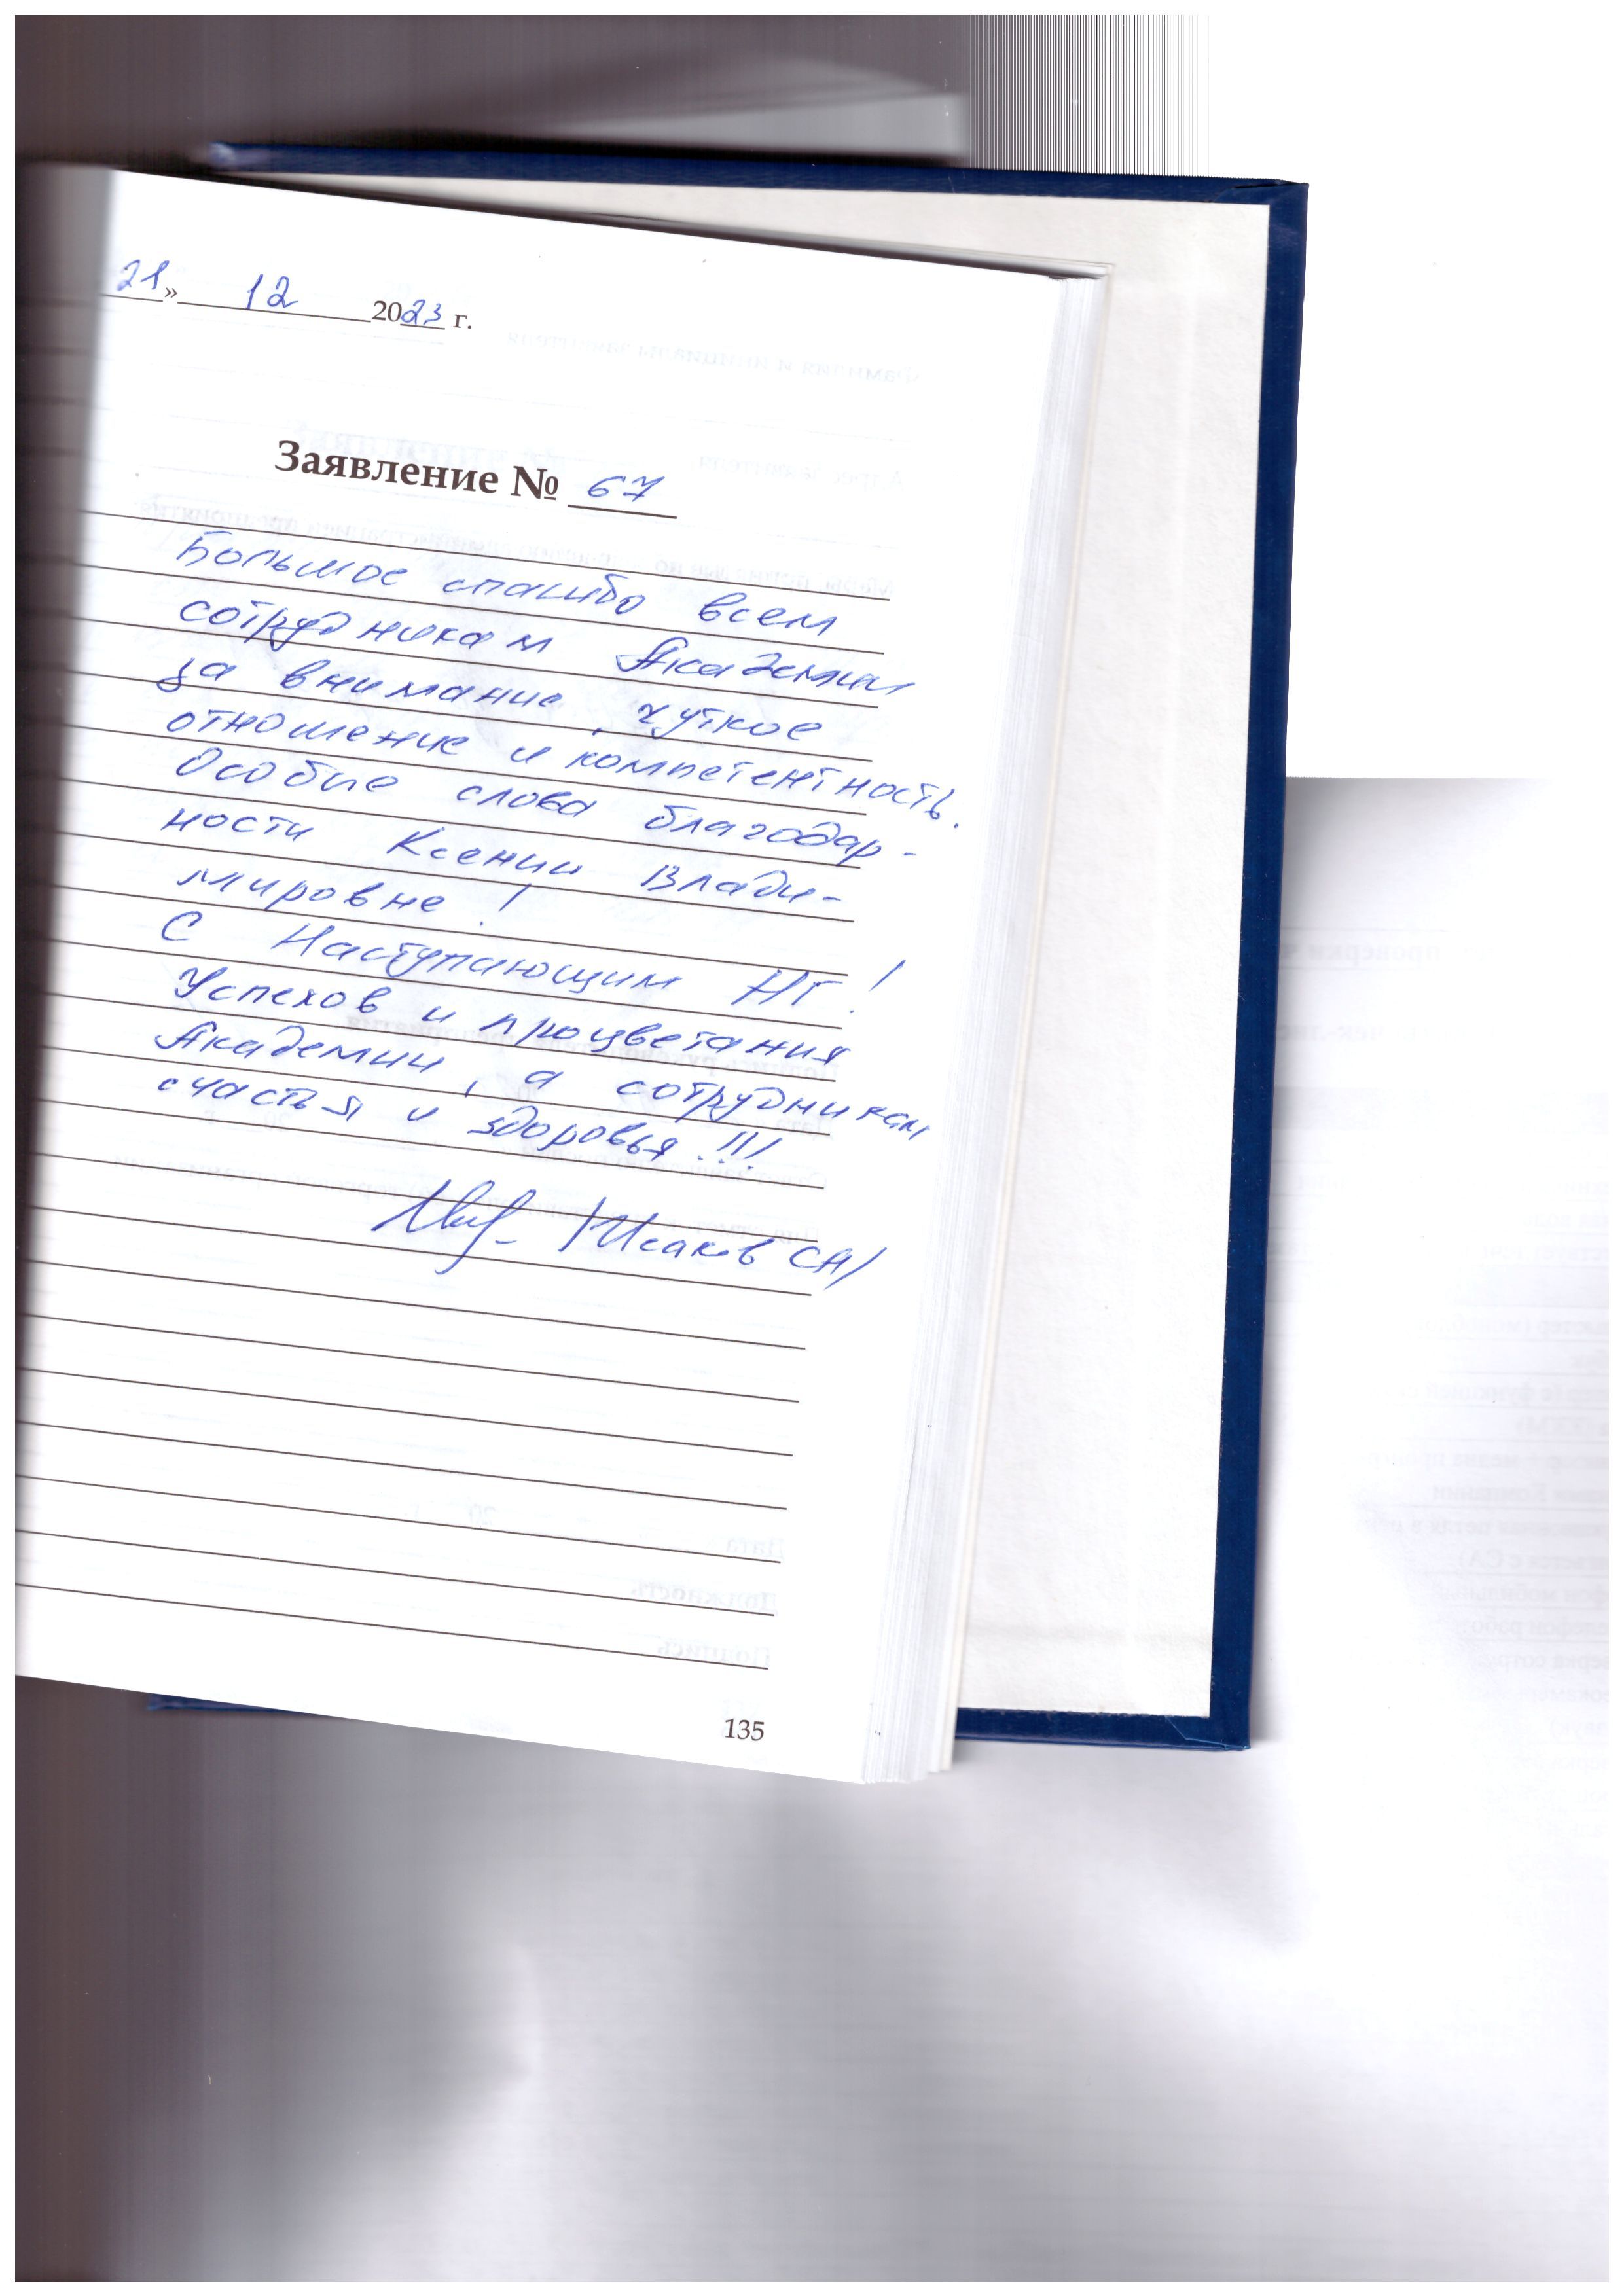 21» 12 2023 г.
Заявление № 67
Большое спасибо всем
сотрудникам Академии
за внимание, чуткое
отношение и компетентность.
Особые слова благодар-
ности Ксении Влади-
мировне!
С Наступающим НГ!
Успехов и процветания
Академии, а сотрудникам
счастья и здоровья!!!
/Исаков СА/
135